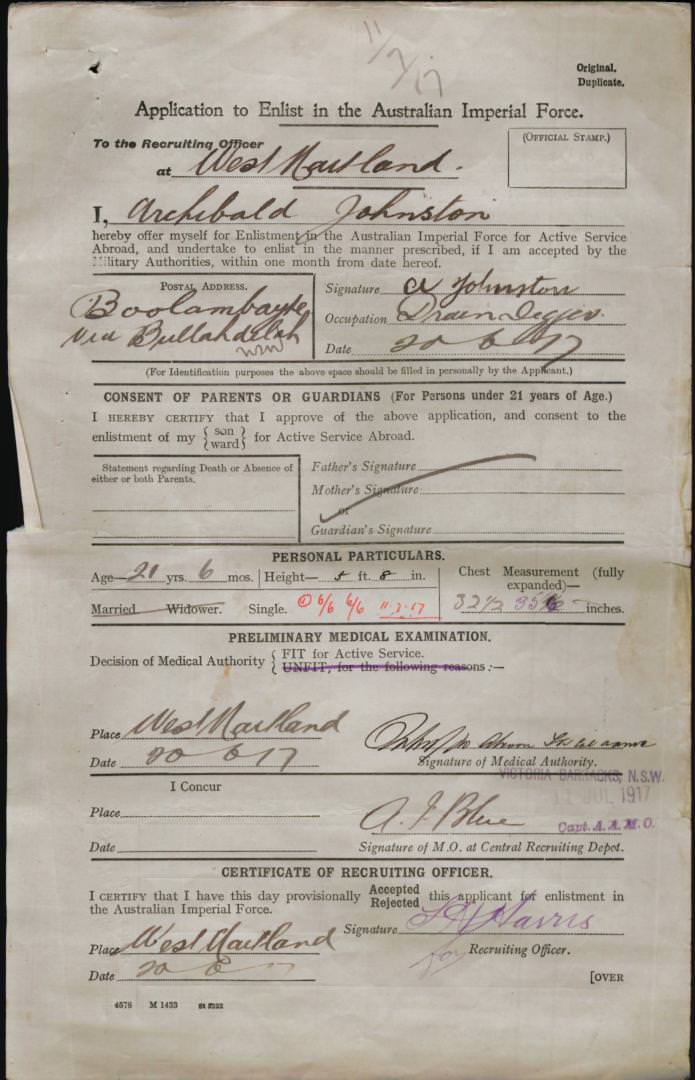 11/7/17
Original.
Duplicate.
Application to Enlist in the Australian Imperial Force.
To the Recruiting Officer
at West Maitland.
(OFFICIAL STAMP.)
I, Archibald Johnston
hereby offer myself for Enlistment in the Australian Imperial Force for Active Service
Abroad, and undertake to enlist in the manner prescribed, if I am accepted by the
Military Authorities, within one month from date hereof.
POSTAL ADDRESS.
Boolambayte
via Bullahdelah
NSW
Signature A Johnston
Occupation Drain Digger.
Date 20 6 17
(For Identification purposes the above space should be filled in personally by the Applicant.)
CONSENT OF PARENTS OR GUARDIANS (For Persons under 21 years of Age.)
I HEREBY CERTIFY that I approve of the above application, and consent to the
enlistment of my { son ward } for Active Service Abroad.
Statement regarding Death or Absence of
either or both Parents.
Father's Signature
Mother's Signature
or
Guardian's Signature
PERSONAL PARTICULARS.
Age—21 yrs. 6 mos. Height— 5 ft. 8 in. Chest Measurement (fully
expanded)—
Married Widower. Single. 6/6 6/6 11.7.17 32½ inches.
PRELIMINARY MEDICAL EXAMINATION.
Decision of Medical Authority { FIT for Active Service.
UNFIT, for the following reasons :—
Place West Maitland
Date 20 6 17
Signature of Medical Authority.
VICTORIA BARRACKS, N.S.W.
JUL 1917
I Concur
Place
A. J. Blue
Capt. A.A.M.C.
Date
Signature of M.O. at Central Recruiting Depot.
CERTIFICATE OF RECRUITING OFFICER.
I CERTIFY that I have this day provisionally Accepted Rejected this applicant for enlistment in
the Australian Imperial Force.
Signature Harris
Place West Maitland
for Recruiting Officer.
Date 20 6 17
[OVER
4578 M 1433